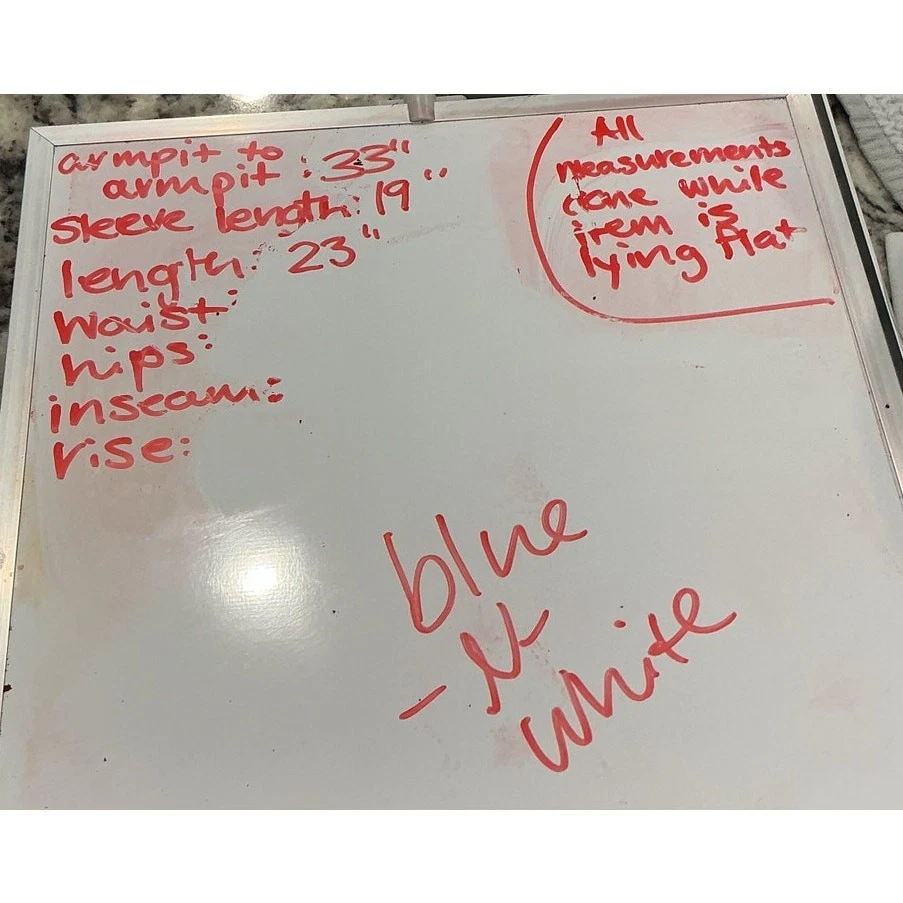 armpit to
armpit : 33"
sleeve length: 19"
length: 23"
Waist:
hips:
inseam:
rise:
All
measurements
done while
item is
lying flat
blue
white